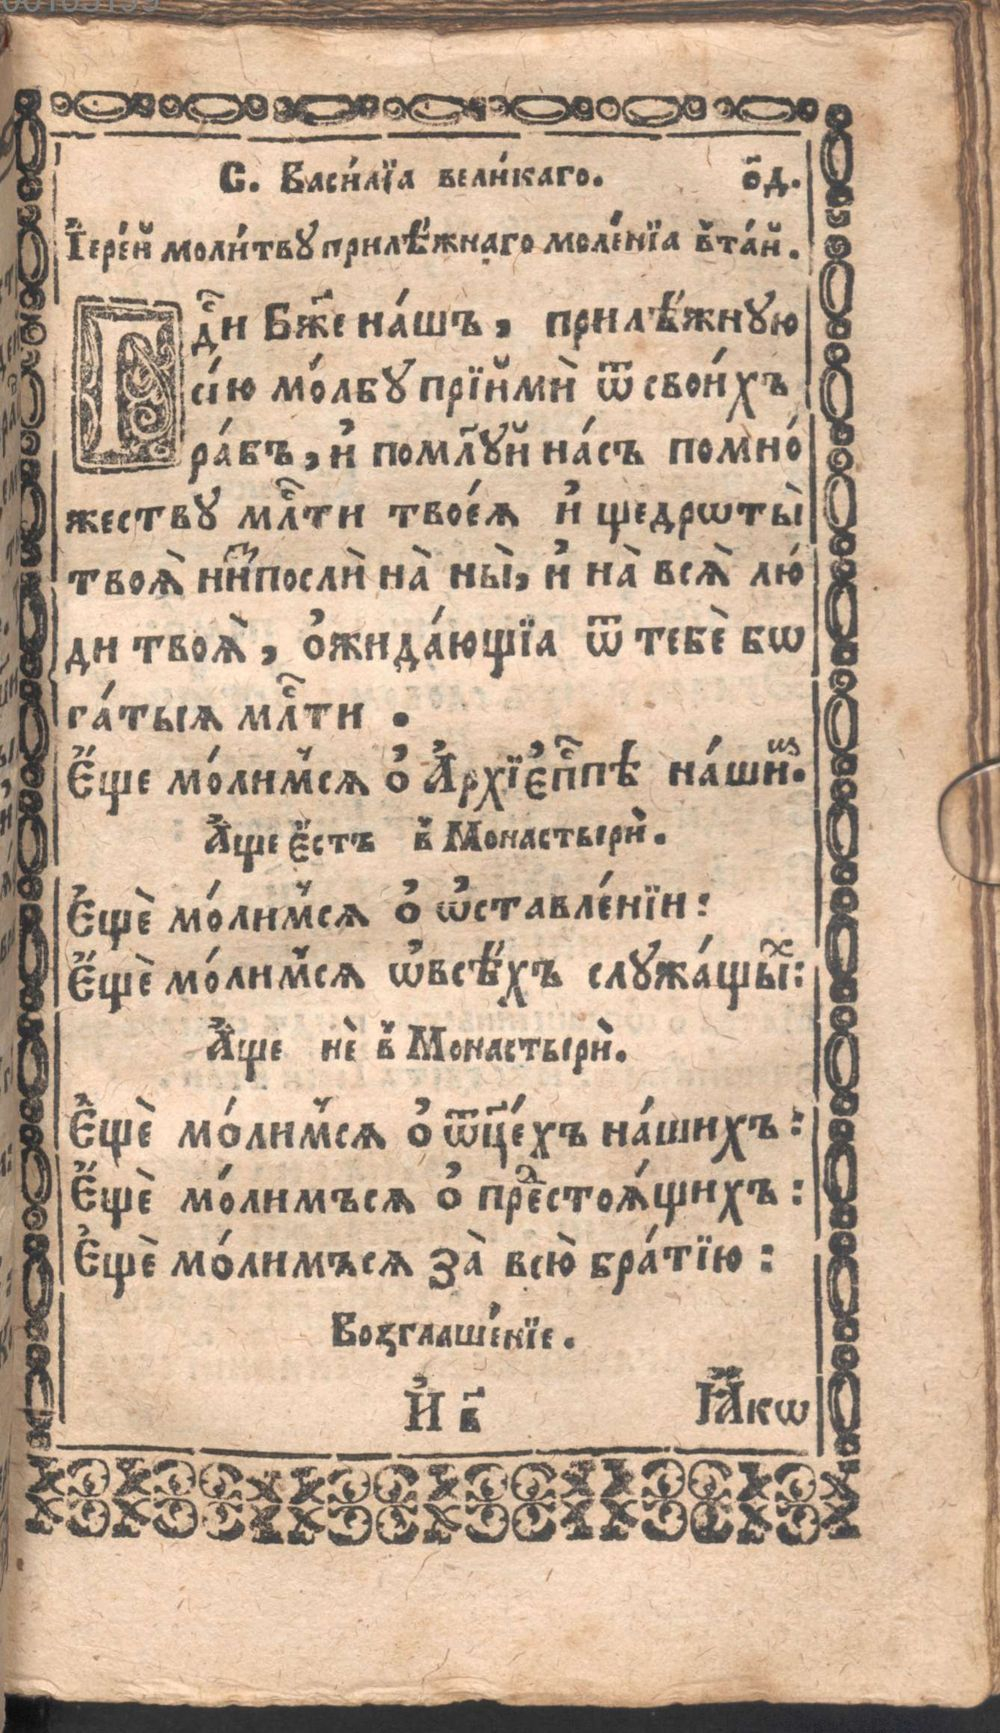 С. Васи́лїа вели́каго. о҃д.
І҆ере́й моли́тву прилѣ́жнаго моле́нїа в̾та́й.
Гд҇и Бж҃е на́шъ, прилѣ́жную
сі́ю мо́лбу прїймѝ ѿ свои́хъ
ра́бъ, и҆ помл҃уй на́съ помно́
жеству мл҇ти твоеѧ́ и҆ щедрѡты̀
твоѧ̀ ни́зпослѝ на̀ ны̀, и҆ на̀ всѧ̀ лю́
ди твоѧ̀, ѻ҆жида́ющїа ѿ тебѐ бѡ
га́тыѧ мл҇ти .
Є҆́ще мо́лим̾сѧ ѻ҆ А҆рхїє҆пп҇ѣ на́шиⷨ.
А҆́ще є҆́стъ в̾ Монастырѝ.
Є҆щѐ мо́лим̾сѧ ѻ҆ ѡ҆ставле́нїи:
Є҆́щѐ мо́лим̾сѧ ѡ҆всѣ́хъ служа́щыⷯ:
А҆́ще нѐ в̾ Монастырѝ.
Є҆́щѐ мо́лим̾сѧ ѻ҆ ѿц҃е́хъ на́шихъ:
Є҆́щѐ мо́лимъсѧ ѻ҆ преⷣстоѧ́щихъ:
Є҆щѐ мо́лимъсѧ за̀ всю̀ бра́тїю:
Возглаше́нїе.
И҆ в҃ Ꙗ҆́кѡ